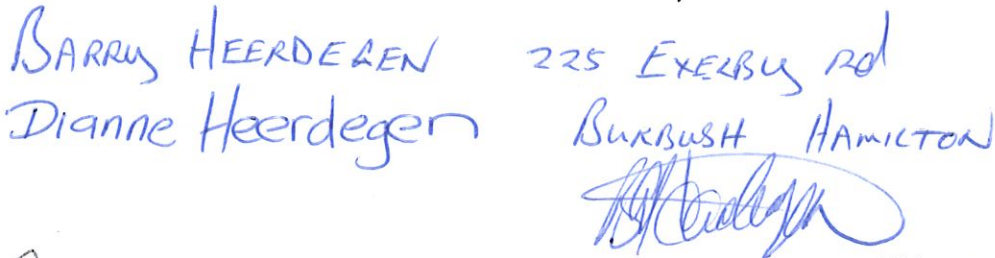 BARRY HEERDEGEN 225 EXELBY Rd
Dianne Heerdegen BURBUSH HAMILTON